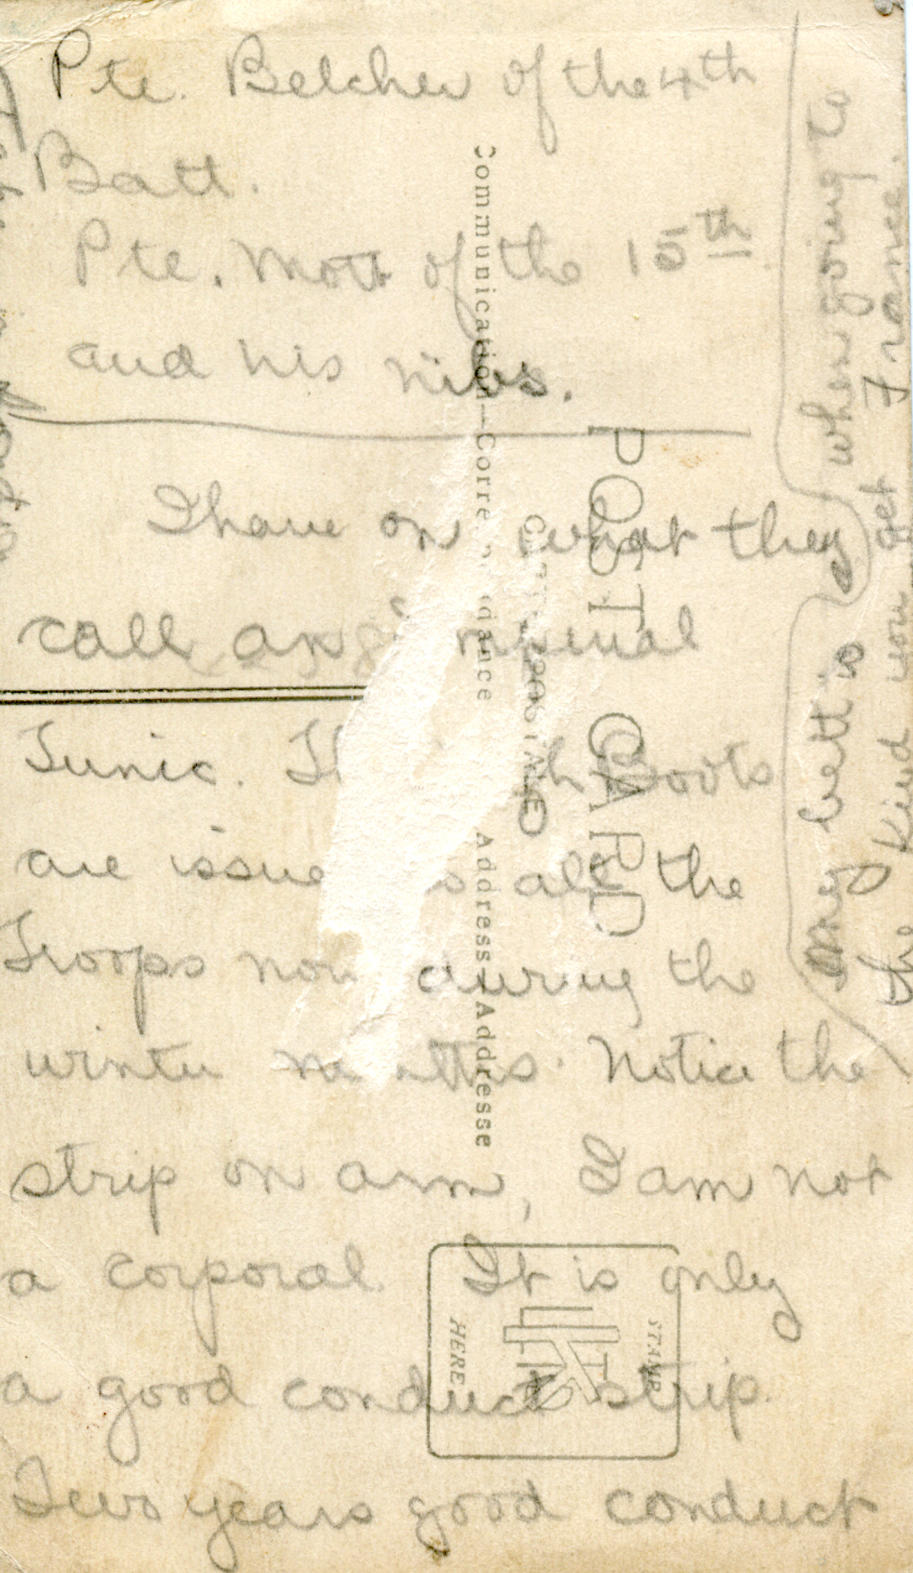 Pte. Belcher of the 4th
Batt.
Pte. Mott of the 15th
and his nibs.
I have on what they
call an
Tunic. Boots
are all the
Troops now during the
winter Notice the
strip on arm, I am not
a corporal. It is only
a good conduct strip.
Two years good conduct
My belt is
the kind you get when going to
France.
POST CARD
Communication—Corre
Address—Addresse
STAMP
HERE